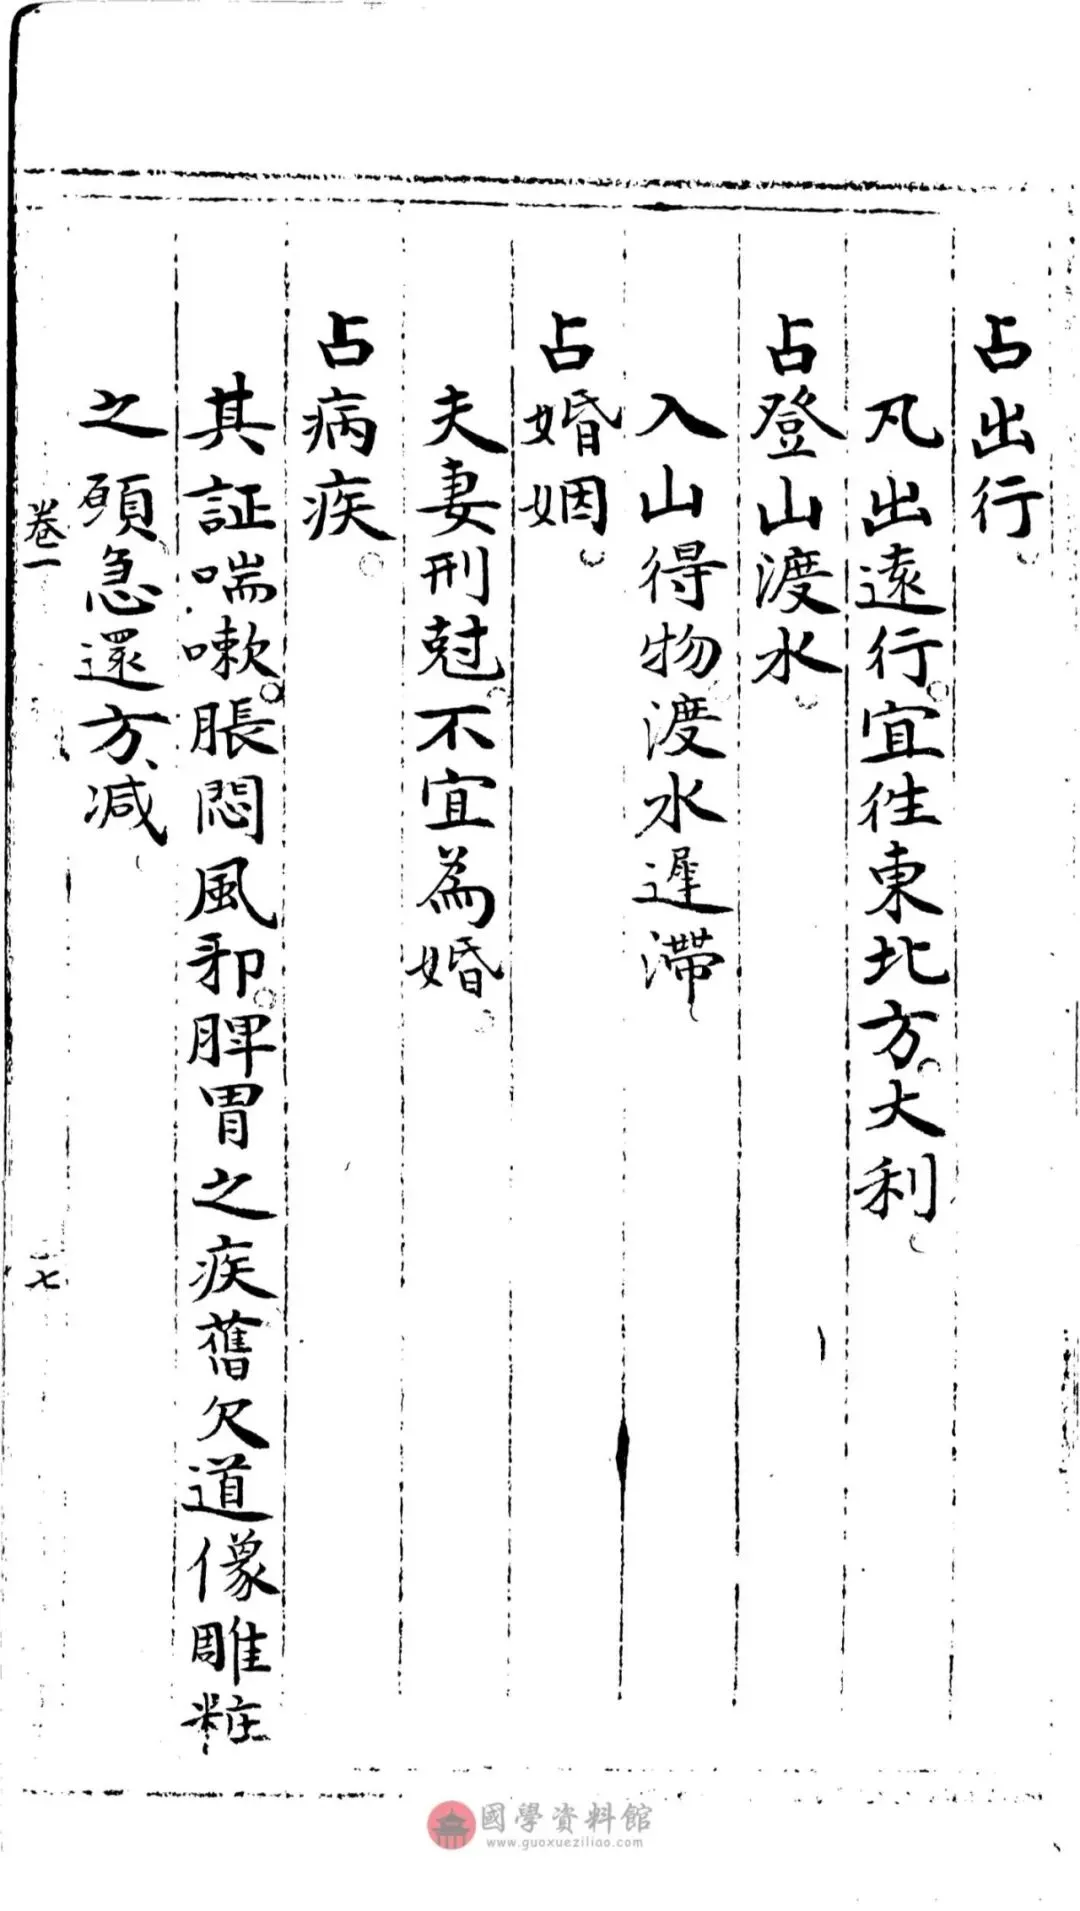 占出行
凡出遠行宜徃東北方大利
占登山渡水
入山得物渡水遲滯
占婚姻
夫妻刑尅不宜為婚
占病疾
其証喘嗽脹悶風邪脾胃之疾舊欠道像雕粧
之願急還方減
卷二
七
國學資料館
www.guoxueziliao.com